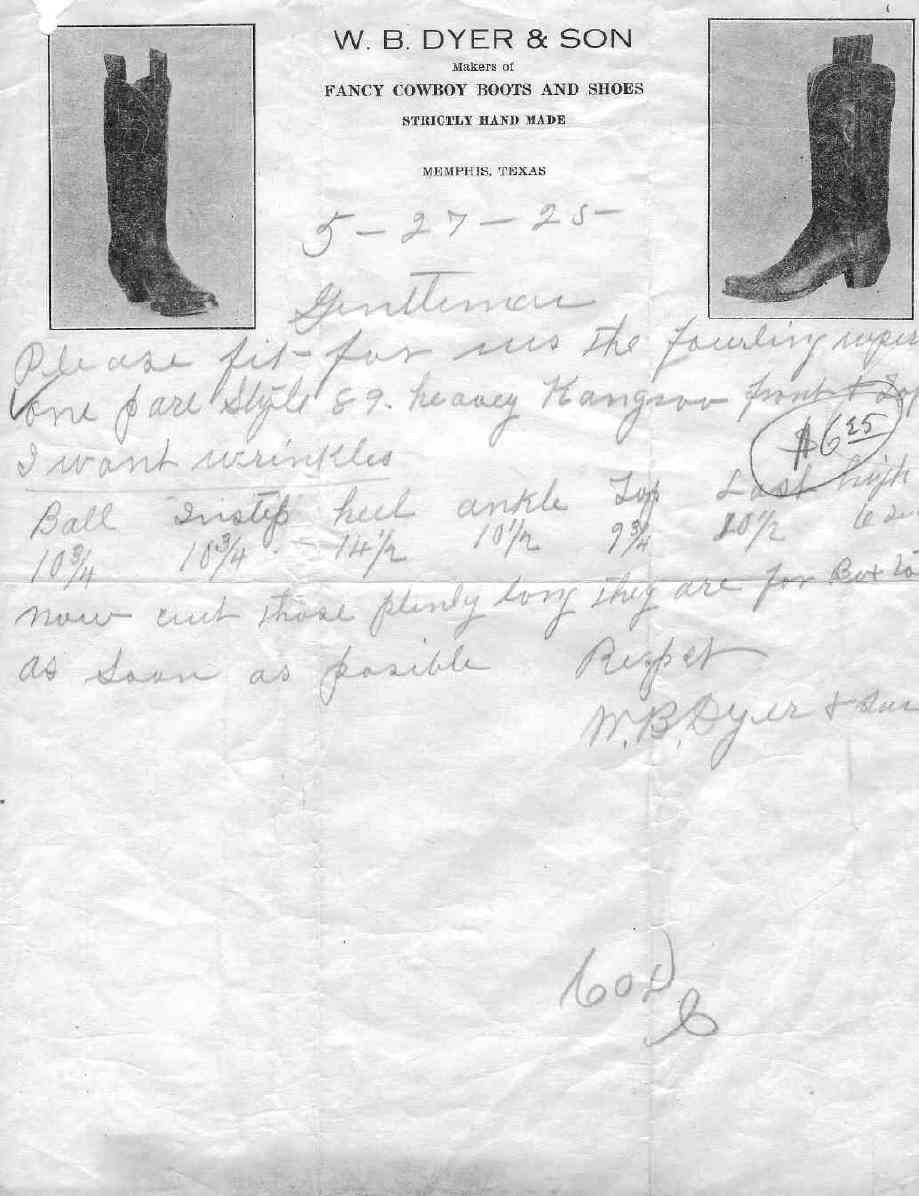 W. B. DYER & SON
Makers of
FANCY COWBOY BOOTS AND SHOES
STRICTLY HAND MADE
MEMPHIS, TEXAS
5-27-25-
Gentlemen
Please fit for us the
one pare Style 89. heavey Kangroo front & Top
$6 25
I want wrinkles
Ball Instep heel ankle Top Last high
10 3/4 10 3/4 - 14 1/2 10 1/2 9 3/4 10 1/2
now cut those plenly long they are for
as soon as posible Respct
W. B. Dyer & Son
COD